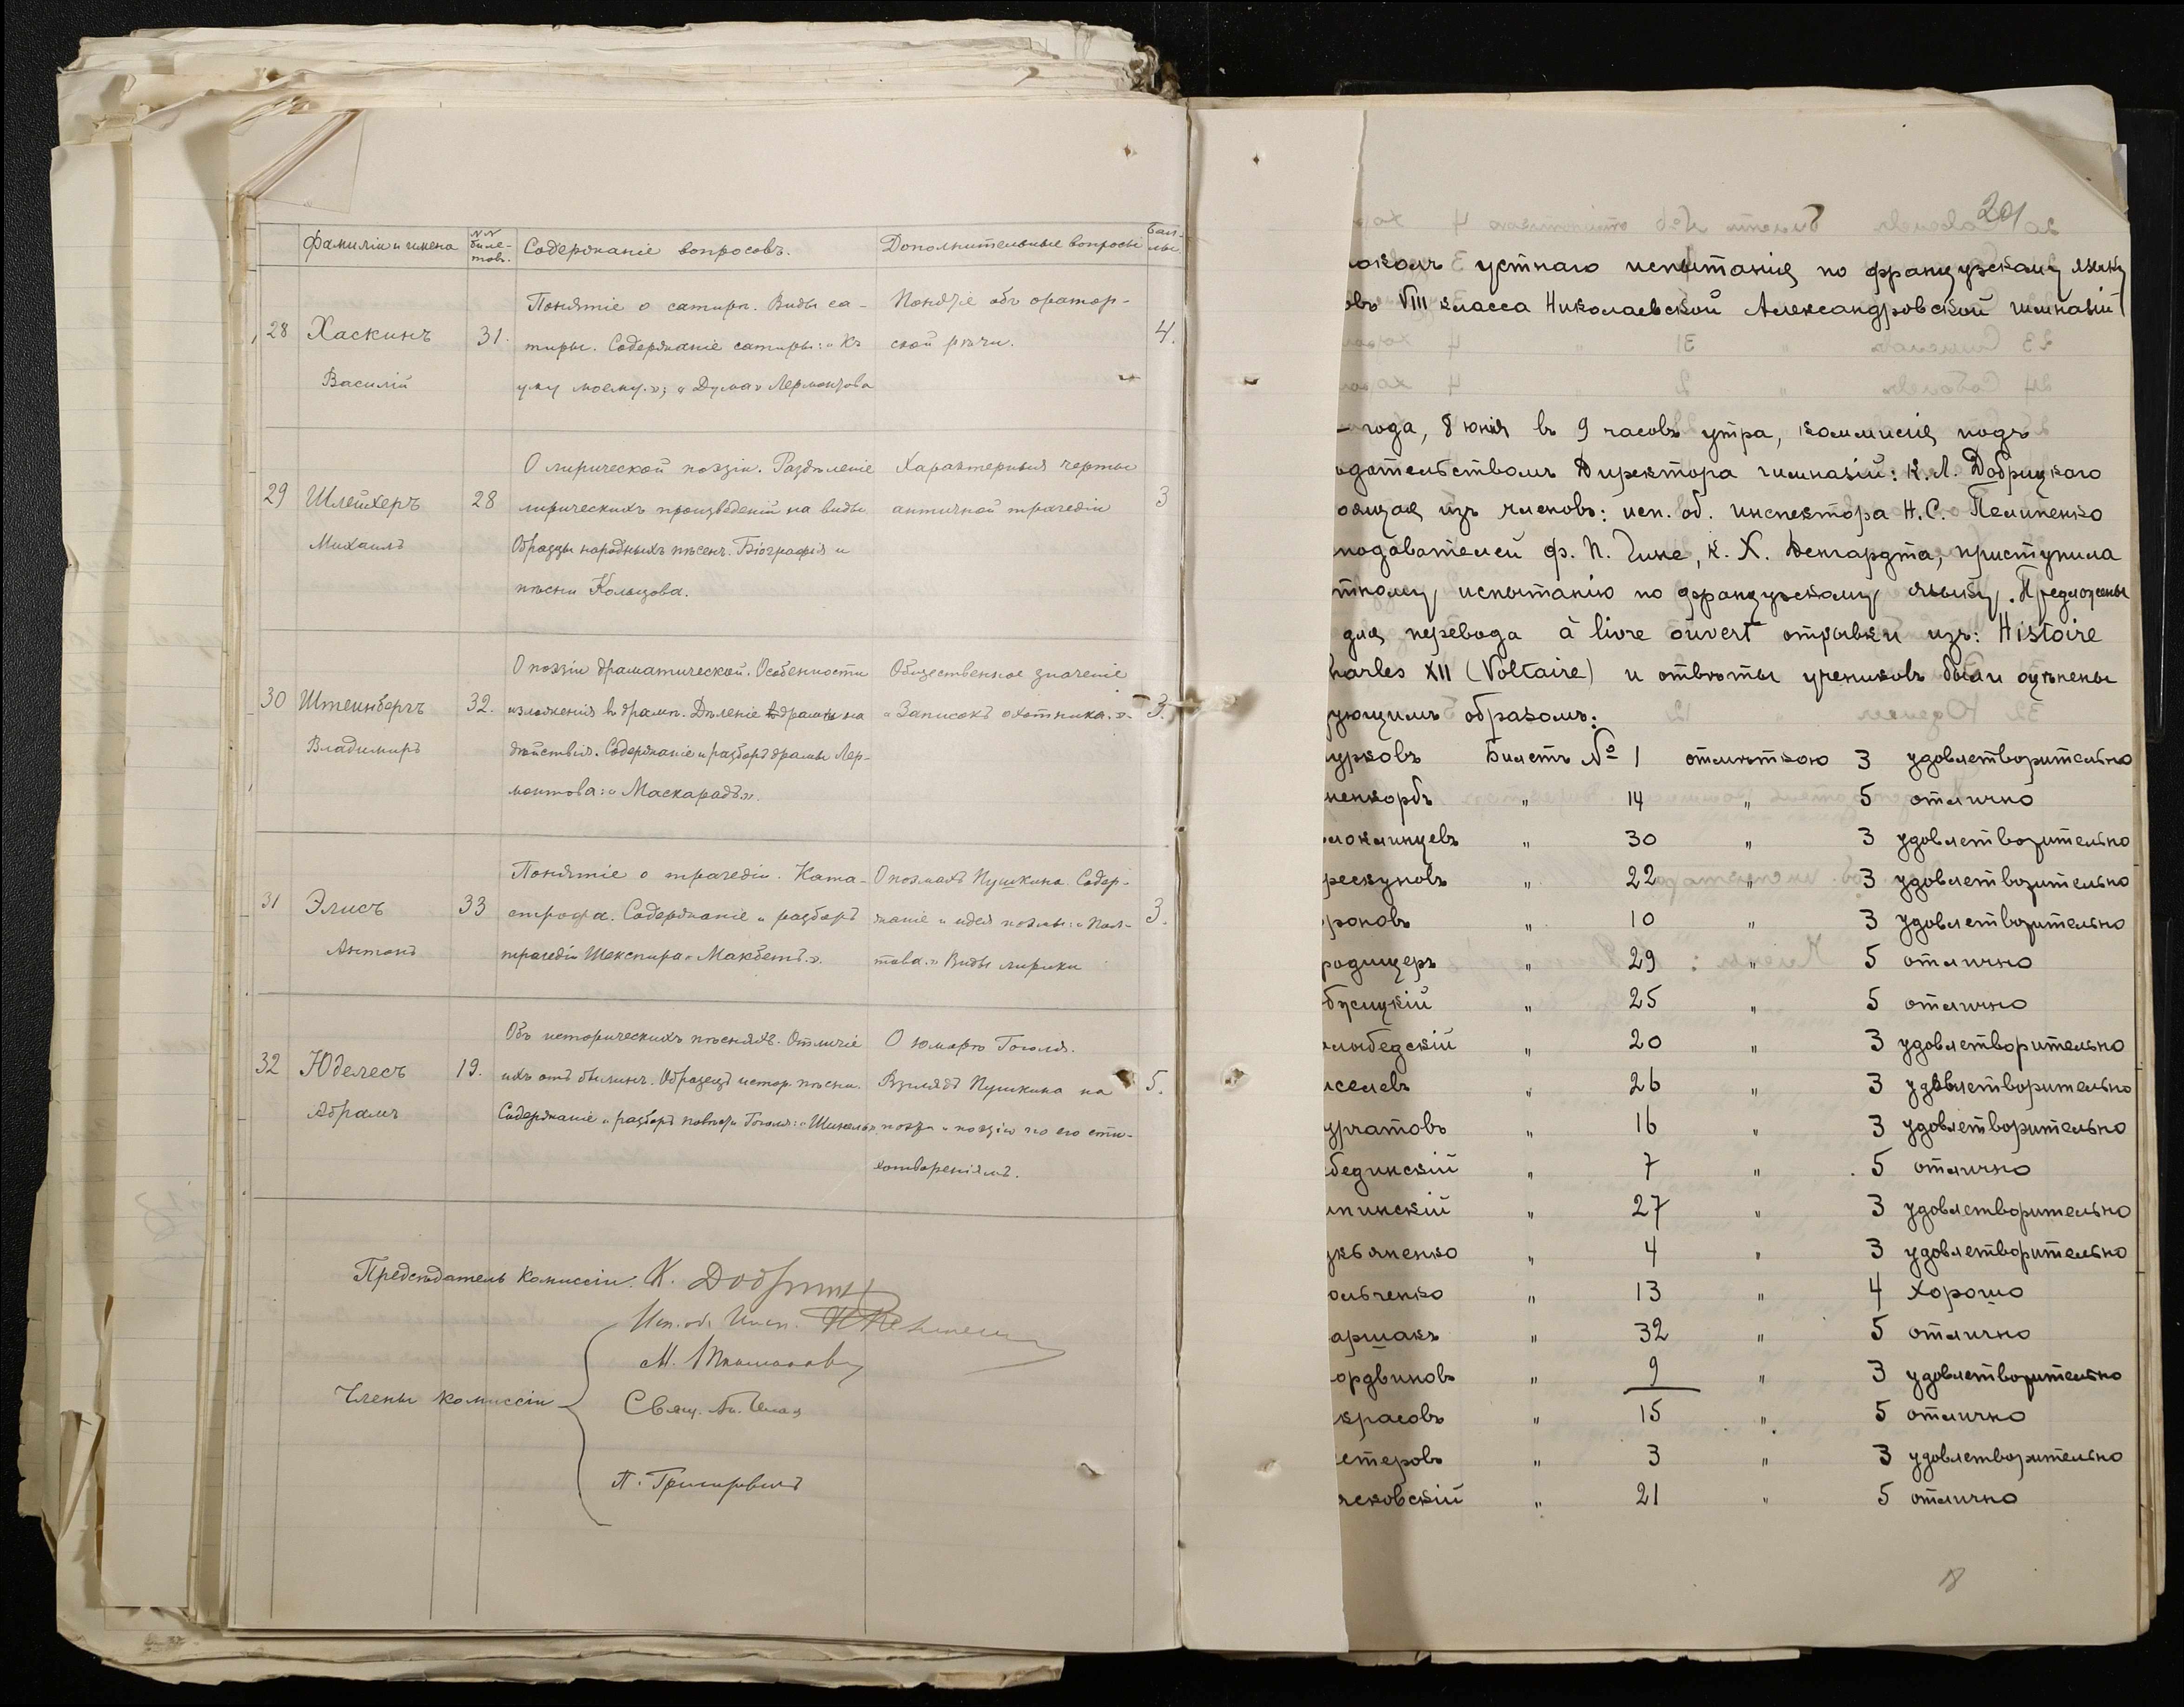 Фамиліи и имена
№№ биле-
товъ.
Содержаніе вопросовъ.
Дополнительные вопросы
Бал-
лы.
28 Хаскинъ
Василій
31.
Понятіе о сатирѣ. Виды са-
тиры. Содержаніе сатиры: „Къ
уму моему."; „Дума" Лермонтова
Понятіе объ оратор-
ской рѣчи.
4.
29 Шлейхеръ
Михаилъ
28
О лирической поэзіи. Раздѣленіе
лирическихъ произведеній на виды
Образцы народныхъ пѣсенъ. Біографія и
пѣсни Кольцова.
Характерныя черты
античной трагедіи
3
30 Штейнбергъ
Владимиръ
32.
О поэзіи драматической. Особенности
изложенія въ драмѣ. Дѣленіе драмы на
дѣйствія. Содержаніе и разборъ драмы Лер-
монтова: „Маскарадъ".
Общественное значеніе
„Записокъ охотника."
3.
31 Элисъ
Антонъ
33
Понятіе о трагедіи. Ката-
строфа. Содержаніе и разборъ
трагедіи Шекспира „Макбетъ."
О поэмахъ Пушкина. Содер-
жаніе и идея поэмы: „Пол-
тава." Виды лирики
3.
32 Юделесъ
Абрамъ
19.
Объ историческихъ пѣсняхъ. Отличіе
ихъ отъ былинъ. Образецъ истор. пѣсни.
Содержаніе и разборъ повѣсти Гоголя: „Шинель"
О юморѣ Гоголя.
Взглядъ Пушкина на
поэта и поэзію по его сти-
хотвореніямъ.
5.
Предсѣдатель комиссіи: К. Добрицкій
Исп. об. Инсп.
М.
Члены комиссіи
Свящ.
П. Григоровичъ
201
околъ устнаго испытанія по французскому языку
овъ VIII класса Николаевской Александровской гимназіи
года, 8 юнія въ 9 часовъ утра, коммисія подъ
одательствомъ Директора гимназіи: К. Л. Добрицкаго
оящая изъ членовъ: исп. об. инспектора Н. С. Пелипенко
подавателей Ф. П. Гине, К. Х. Денгардта, приступила
тному испытанію по французскому языку. Предложены
для перевода à livre ouvert отрывки изъ: Histoire
harles XII (Voltaire) и отвѣты учениковъ были оцѣнены
ующимъ образомъ:
урковъ Билетъ № 1 отмѣткою 3 удовлетворительно
ненкорбъ " 14 " 5 отлично
локлинцевъ " 30 " 3 удовлетворительно
рескуновъ " 22 " 3 удовлетворительно
ороновъ " 10 " 3 удовлетворительно
родищеръ " 29 " 5 отлично
буслцкій " 25 " 5 отлично
олыбедскій " 20 " 3 удовлетворительно
иселевъ " 26 " 3 удовлетворительно
урчатовъ " 16 " 3 удовлетворительно
бединскій " 7 " 5 отлично
ипинскій " 27 " 3 удовлетворительно
укьяненко " 4 " 3 удовлетворительно
ольченко " 13 " 4 хорошо
аршакъ " 32 " 5 отлично
ордвиновъ " 9 " 3 удовлетворительно
красовъ " 15 " 5 отлично
етеровъ " 3 " 3 удовлетворительно
чсковскій " 21 " 5 отлично
18